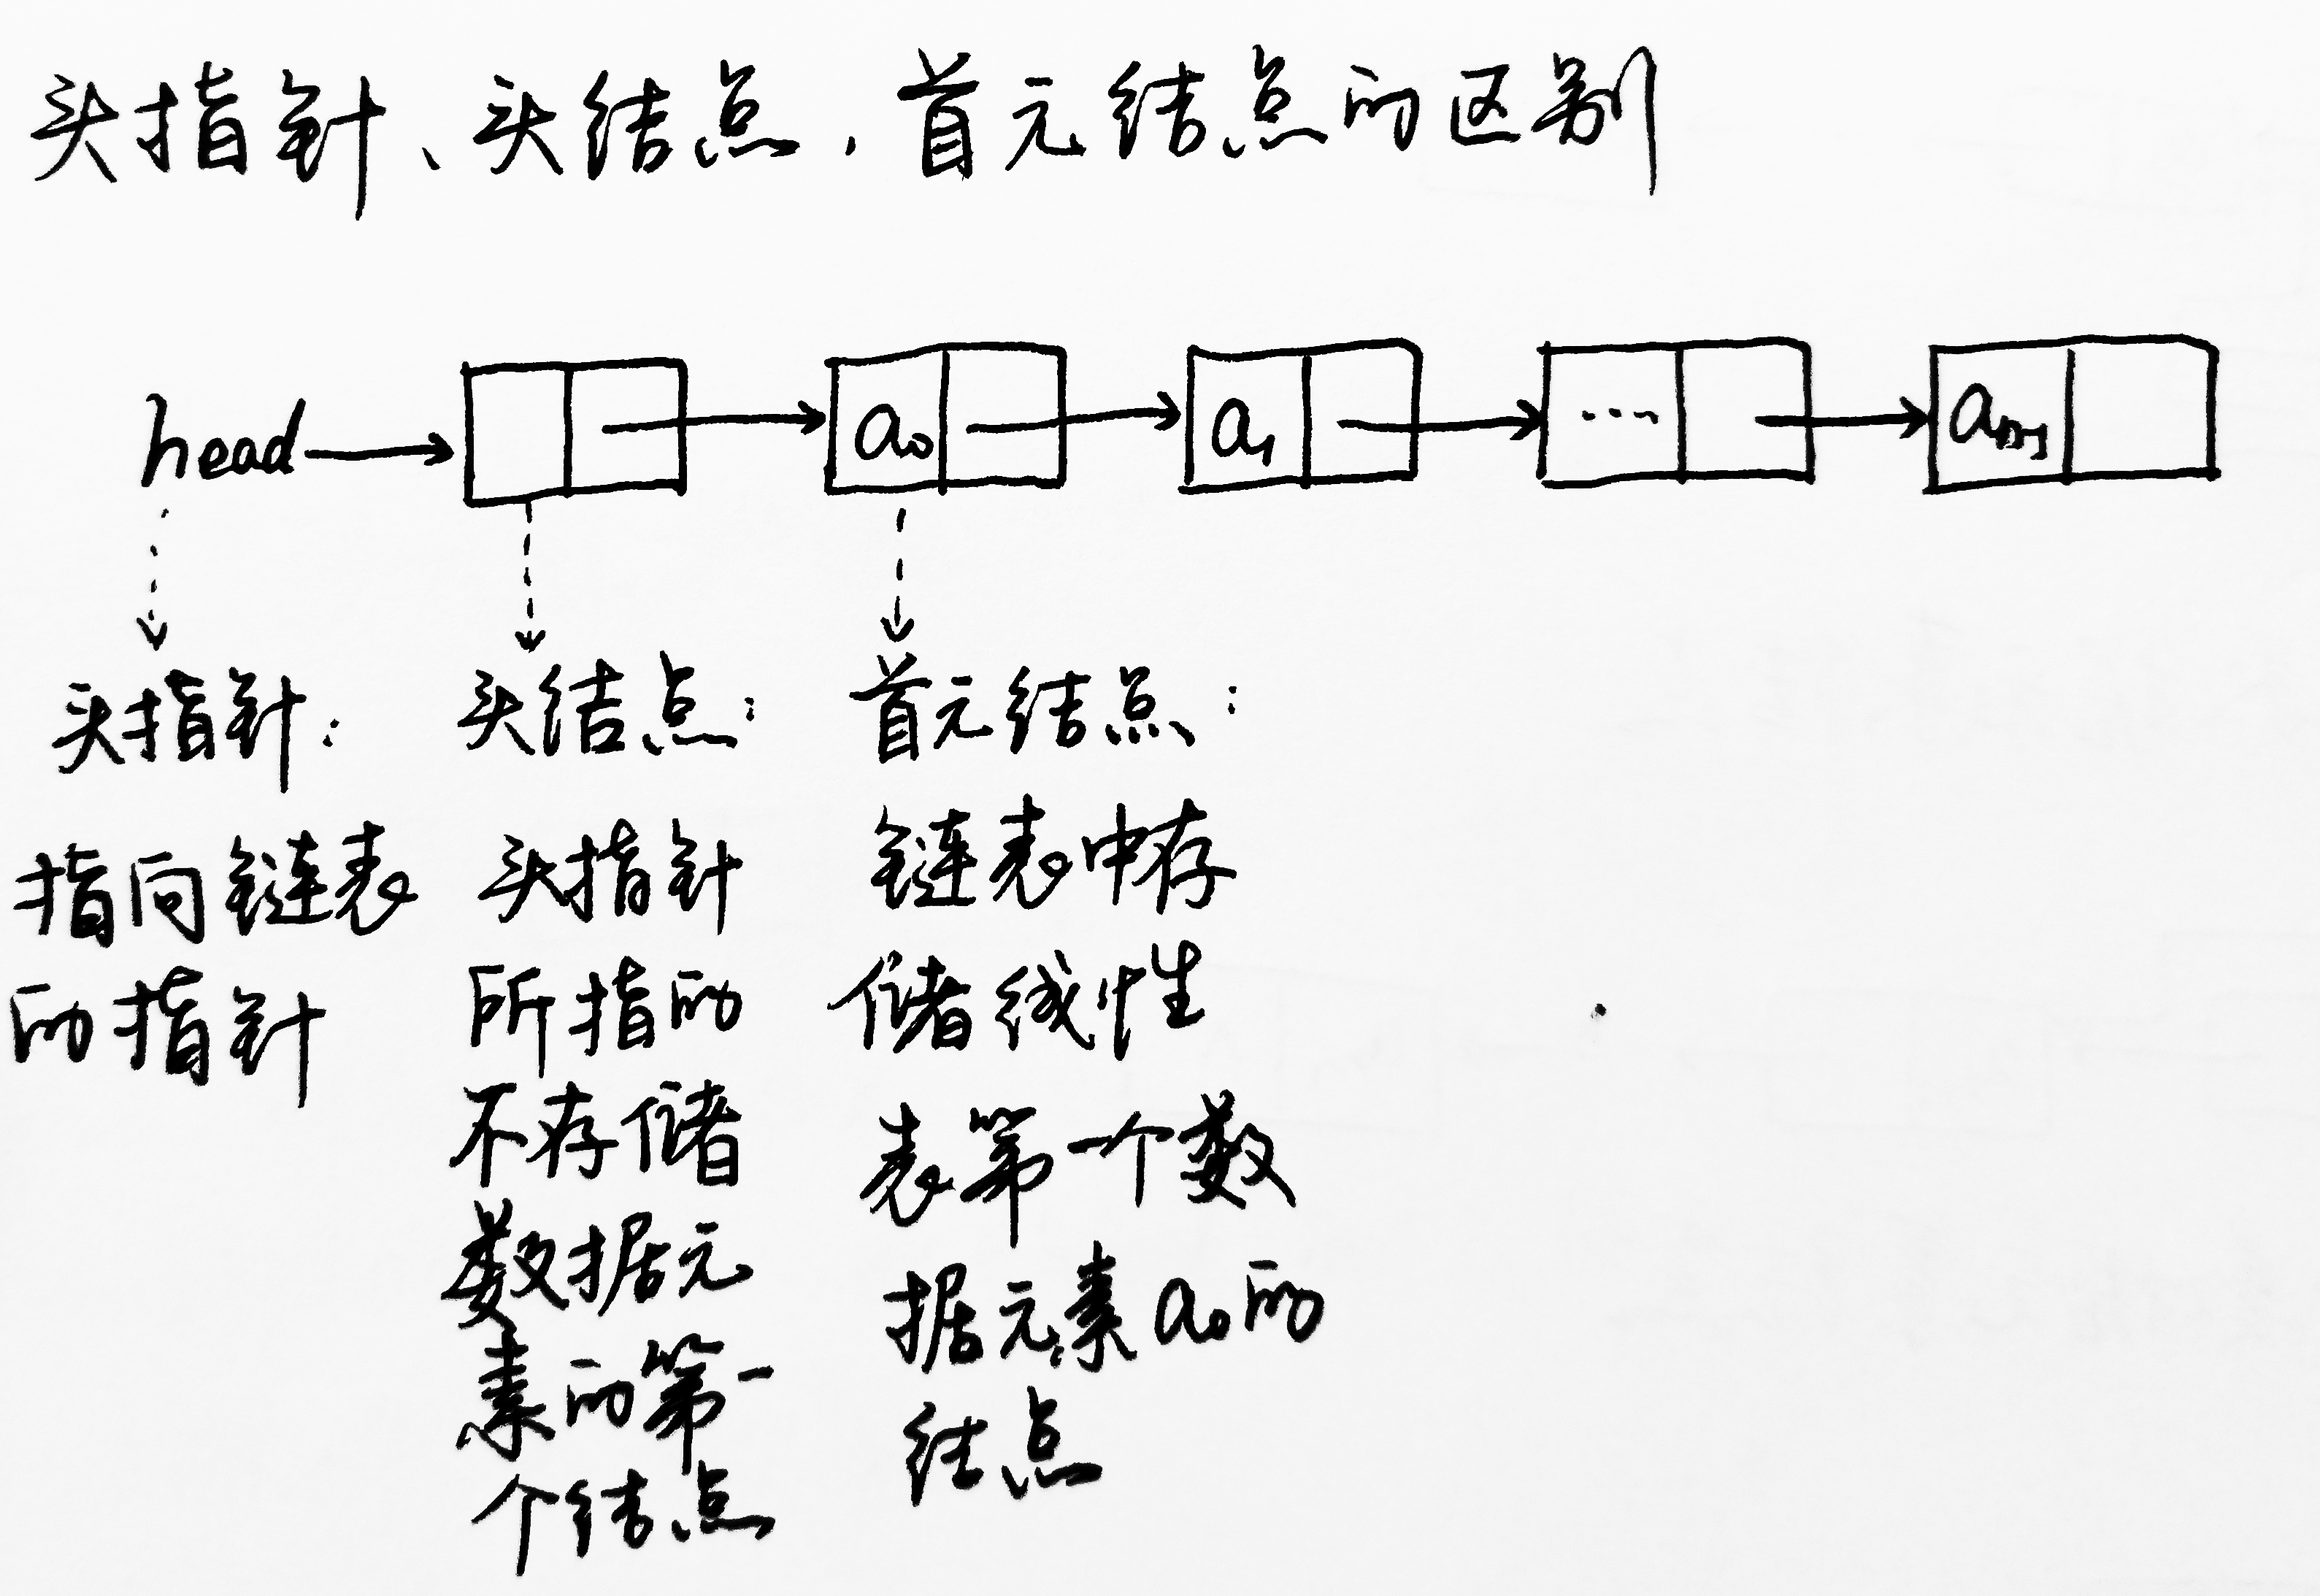 头指针、头结点,首元结点的区别
head a0 a1 ... an-1
头指针:
指向链表
的指针
头结点:
头指针
所指的
不存储
数据元
素的第一
个结点
首元结点:
链表中存
储线性
表第一个数
据元素a0的
结点